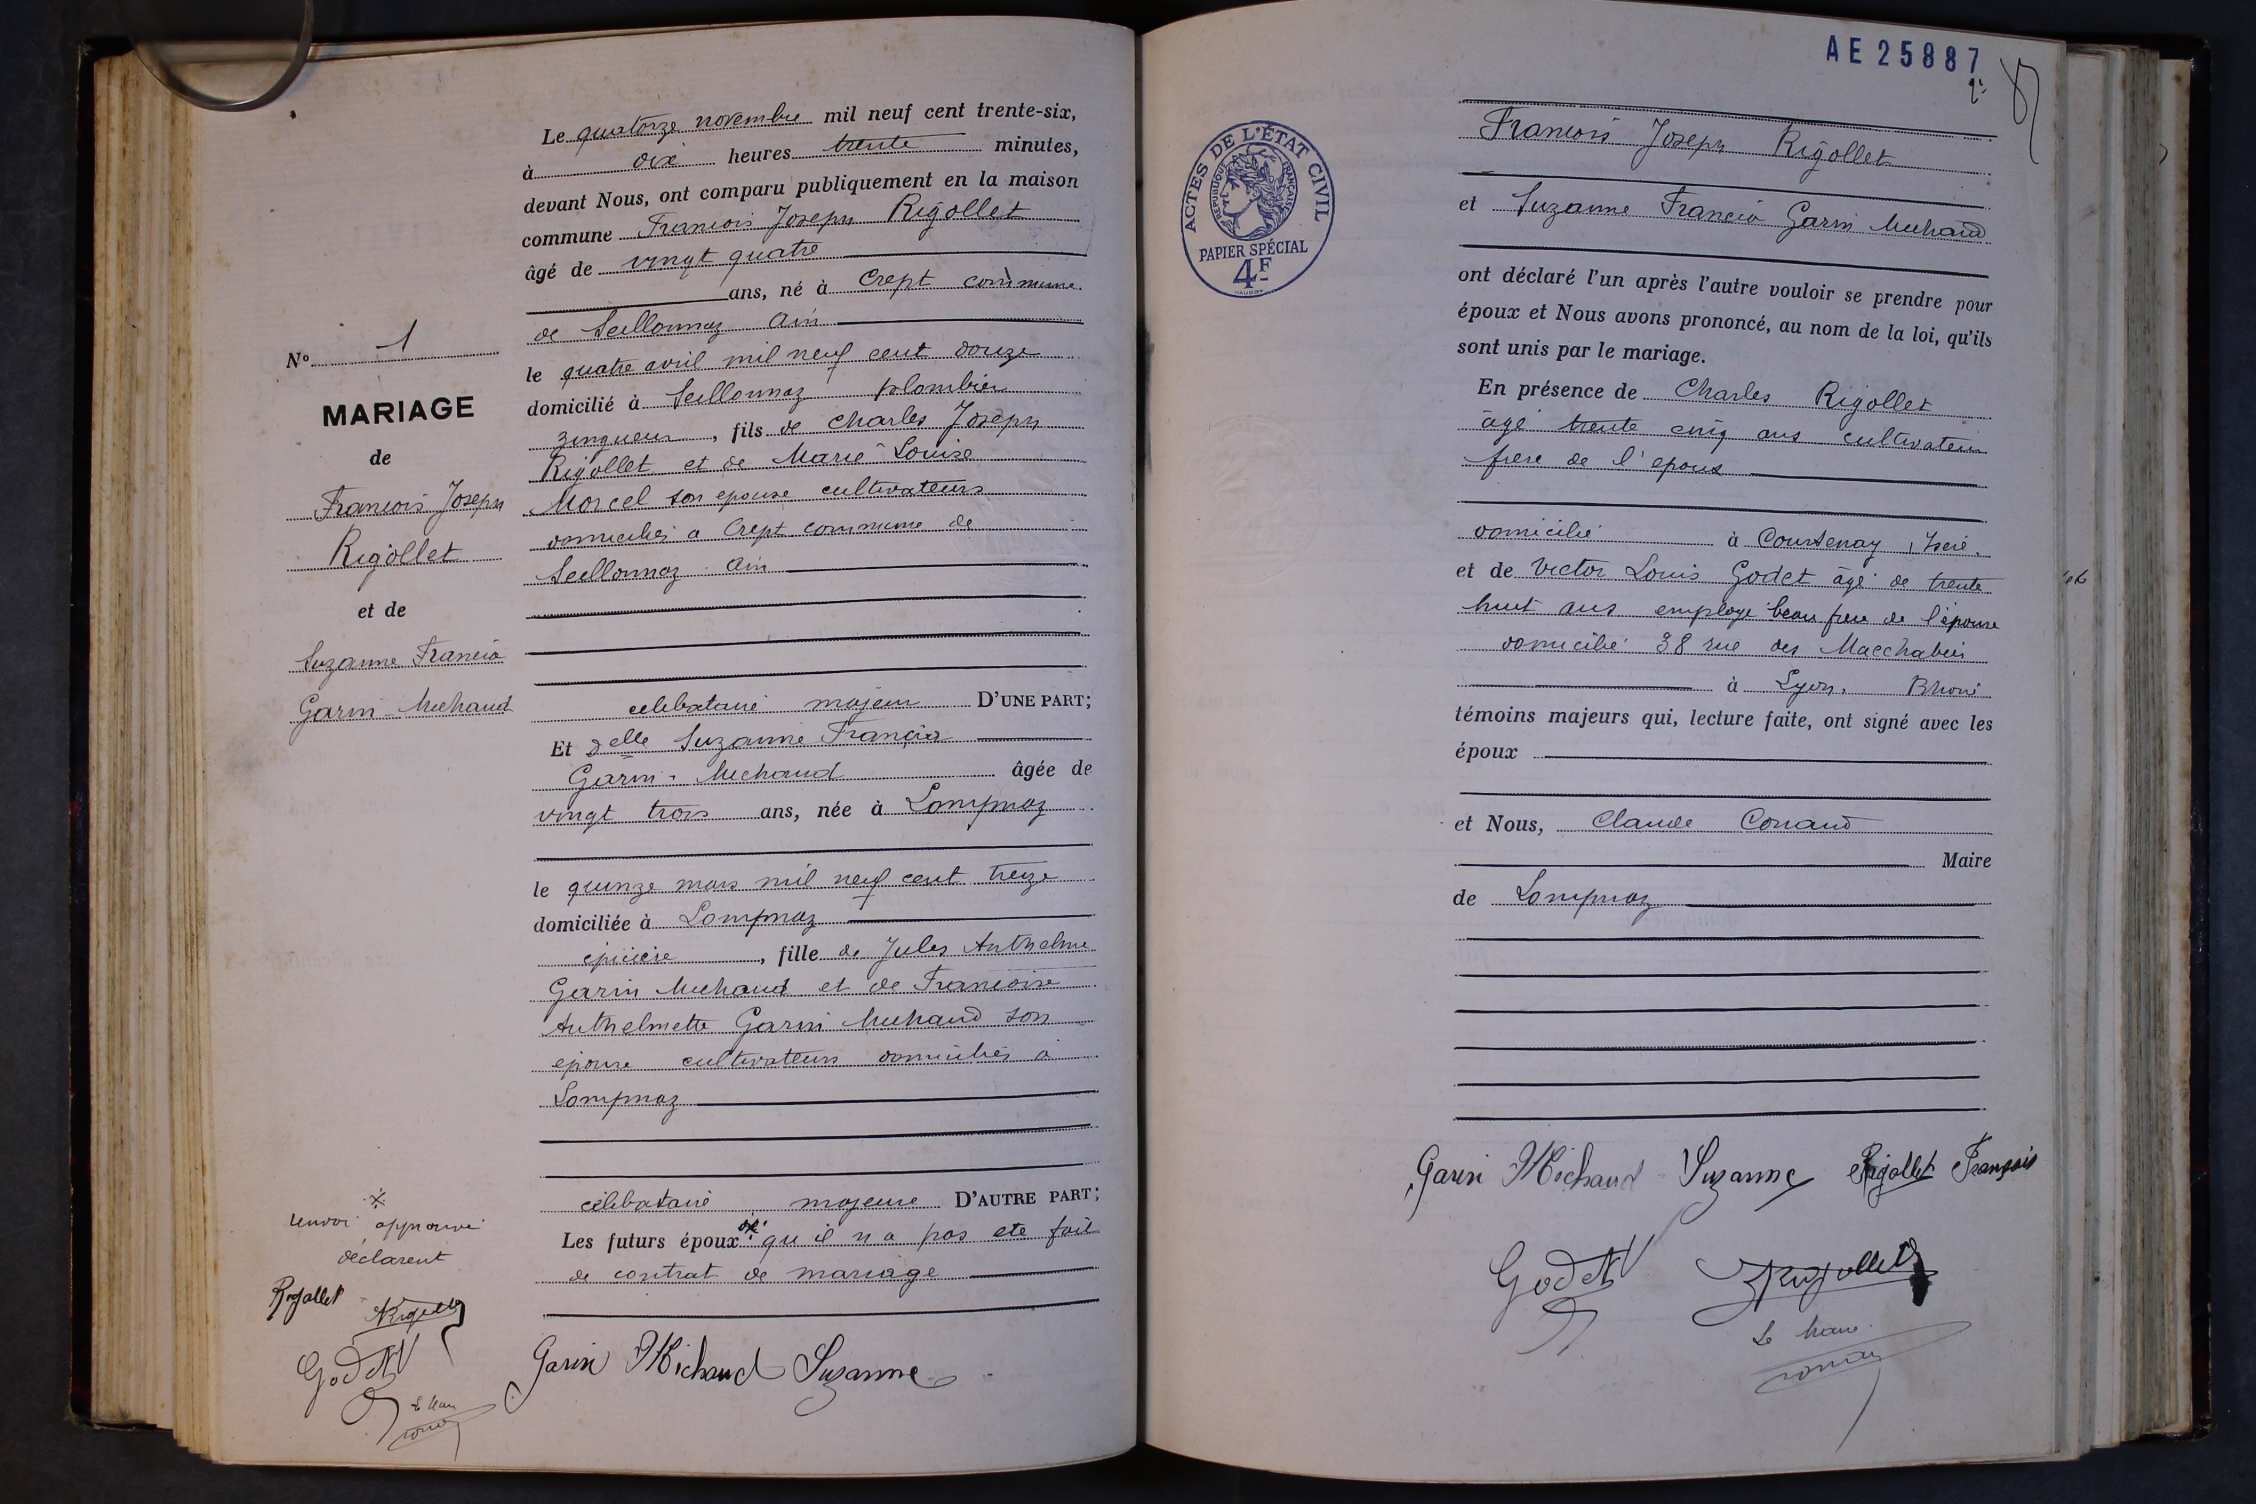 N° 1
MARIAGE
de
François Joseph
Rigollet
et de
Suzanne Francia
Garin-Michaud
Le quatorze novembre mil neuf cent trente-six,
à dix heures trente minutes,
devant Nous, ont comparu publiquement en la maison
commune François Joseph Rigollet
âgé de vingt quatre
ans, né à Crept commune
de Seillonnaz Ain
le quatre avril mil neuf cent douze
domicilié à Seillonnaz plombier
zingueur, fils de Charles Joseph
Rigollet et de Marie Louise
Morcel son epouse cultivateurs
domiciliés a Crept commune de
Seillonnaz Ain
celibataire majeur D'UNE PART;
Et delle Suzanne Francia
Garin-Michaud âgée de
vingt trois ans, née à Lompnaz
le quinze mars mil neuf cent treize
domiciliée à Lompnaz
épicière, fille de Jules Anthelme
Garin Michaud et de Françoise
Anthelmette Garin Michaud son
épouse cultivateurs domiciliés à
Lompnaz
célibataire majeure D'AUTRE PART;
Les futurs époux qu'il n'a pas ete fait
de contrat de mariage
renvoi approuvé
déclarent
Rigollet
Rigollet
Godet V
Le Maire
Garin Michaud Suzanne
AE 25887
ACTES DE L'ÉTAT CIVIL
RÉPUBLIQUE FRANÇAISE
PAPIER SPÉCIAL
4F
François Joseph Rigollet
et Suzanne Francia Garin Michaud
ont déclaré l'un après l'autre vouloir se prendre pour
époux et Nous avons prononcé, au nom de la loi, qu'ils
sont unis par le mariage.
En présence de Charles Rigollet
âgé trente cinq ans cultivateur
frere de l'epoux
domicilié à Courtenay Isère.
et de Victor Louis Godet âgé de trente
huit ans employé beau frere de l'épouse
domicilié 38 rue des Macchabées
à Lyon. Rhone
témoins majeurs qui, lecture faite, ont signé avec les
époux
et Nous, Claude Conand
Maire
de Lompnaz
Garin Michaud Suzanne Rigollet François
Godet V
Rigollet
Le Maire
Conand